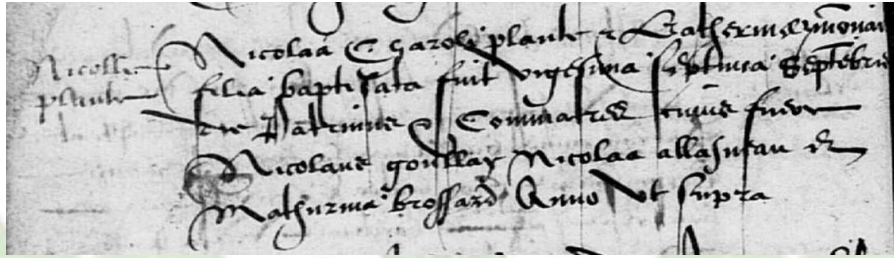 Nicolle
plante
Nicolaa Charoli plante & Katherine ymonai
filia baptisata fuit vigesima septima Septēbris
die Patrinus & Commatres cuius fuer
Nicolaus gouffay Nicolaa allasneau &
Mathurina brossard Anno Vt supra